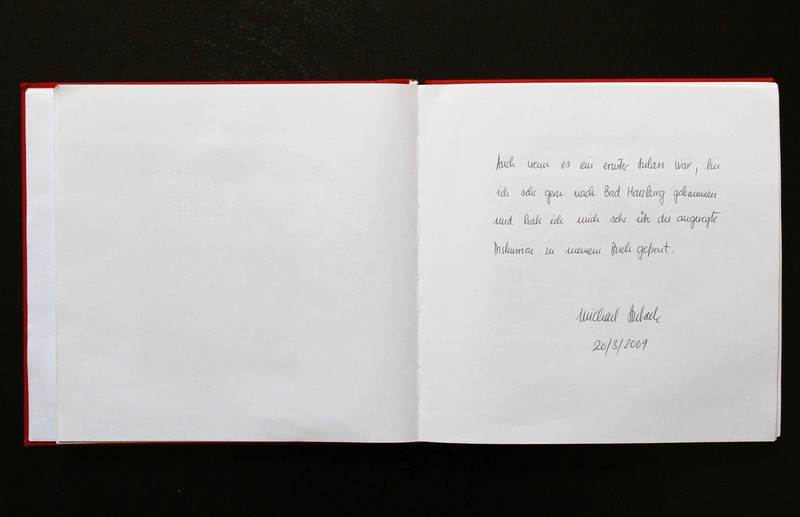 Auch wenn es ein ernster Anlass war, bin
ich sehr gern nach Bad Harzburg gekommen
und hab ich mich sehr über die angeregte
Diskussion zu meinem Buch gefreut.
Michael
20/3/2009